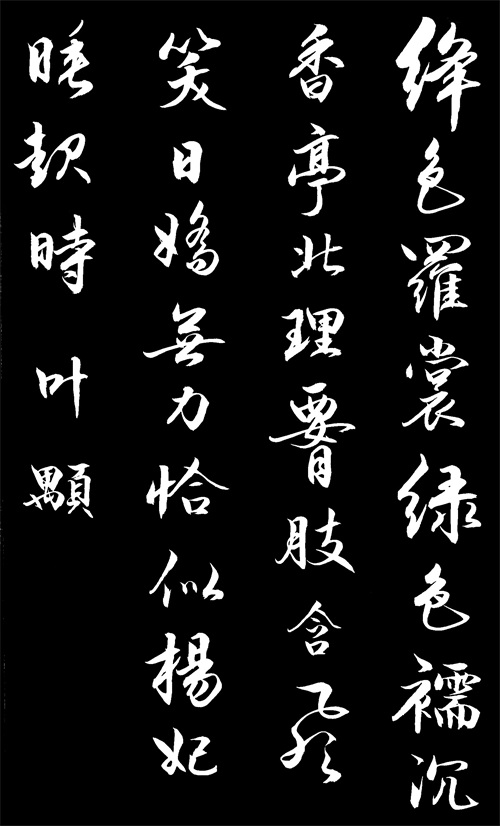 絳色羅裳緑色襦沉
香亭北理腰肢含風
笑日嬌無力恰似楊妃
睡起時 叶顒